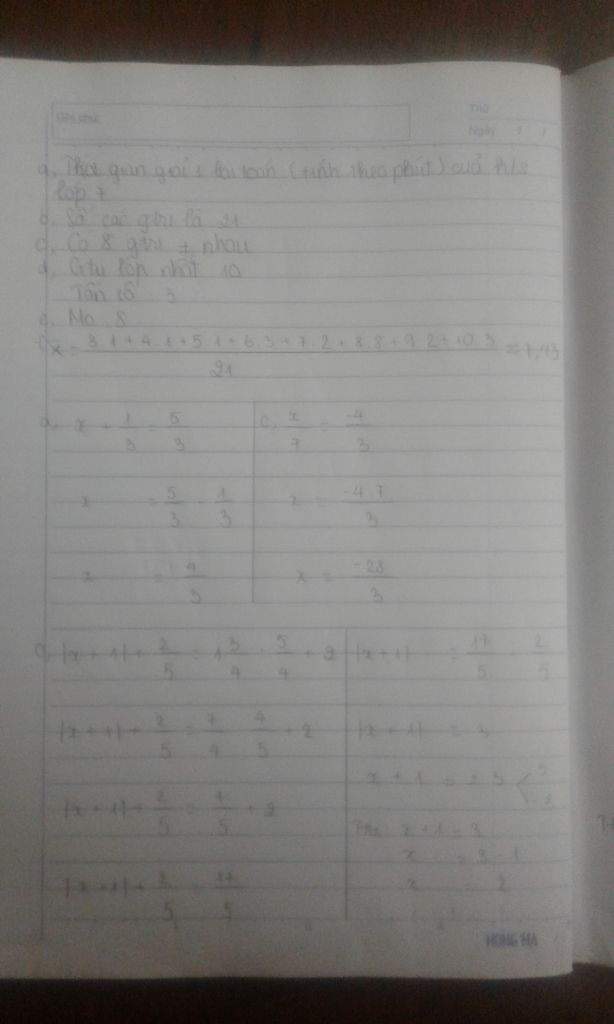 Thứ
Ngày / /
a, Thời gian giải 1 bài toán (tính theo phút) của h/s
lớp 7
b, Số các gtrị là 21
c, Có 8 gtrị ≠ nhau
d, Gtrị lớn nhất 10
Tần số 3
e, Mo 8
x = 3.1+4.1+5.1+6.3+7.2+8.8+9.2+10.3 / 21 = 7,43
a, x + 1/3 = 5/3
x = 5/3 - 1/3
x = 4/3
c, x/7 = -4/3
x = -4.7/3
x = -28/3
|x + 1| + 2/5 = 1 3/4 : 5/4 + 2
|x + 1| + 2/5 = 7/4 . 4/5 + 2
|x + 1| + 2/5 = 7/5 + 2
|x + 1| + 2/5 = 17/5
|x + 1| = 17/5 - 2/5
|x + 1| = 3
x + 1 = ±3
x + 1 = 3
x = 3 - 1
x = 2
HONG HA